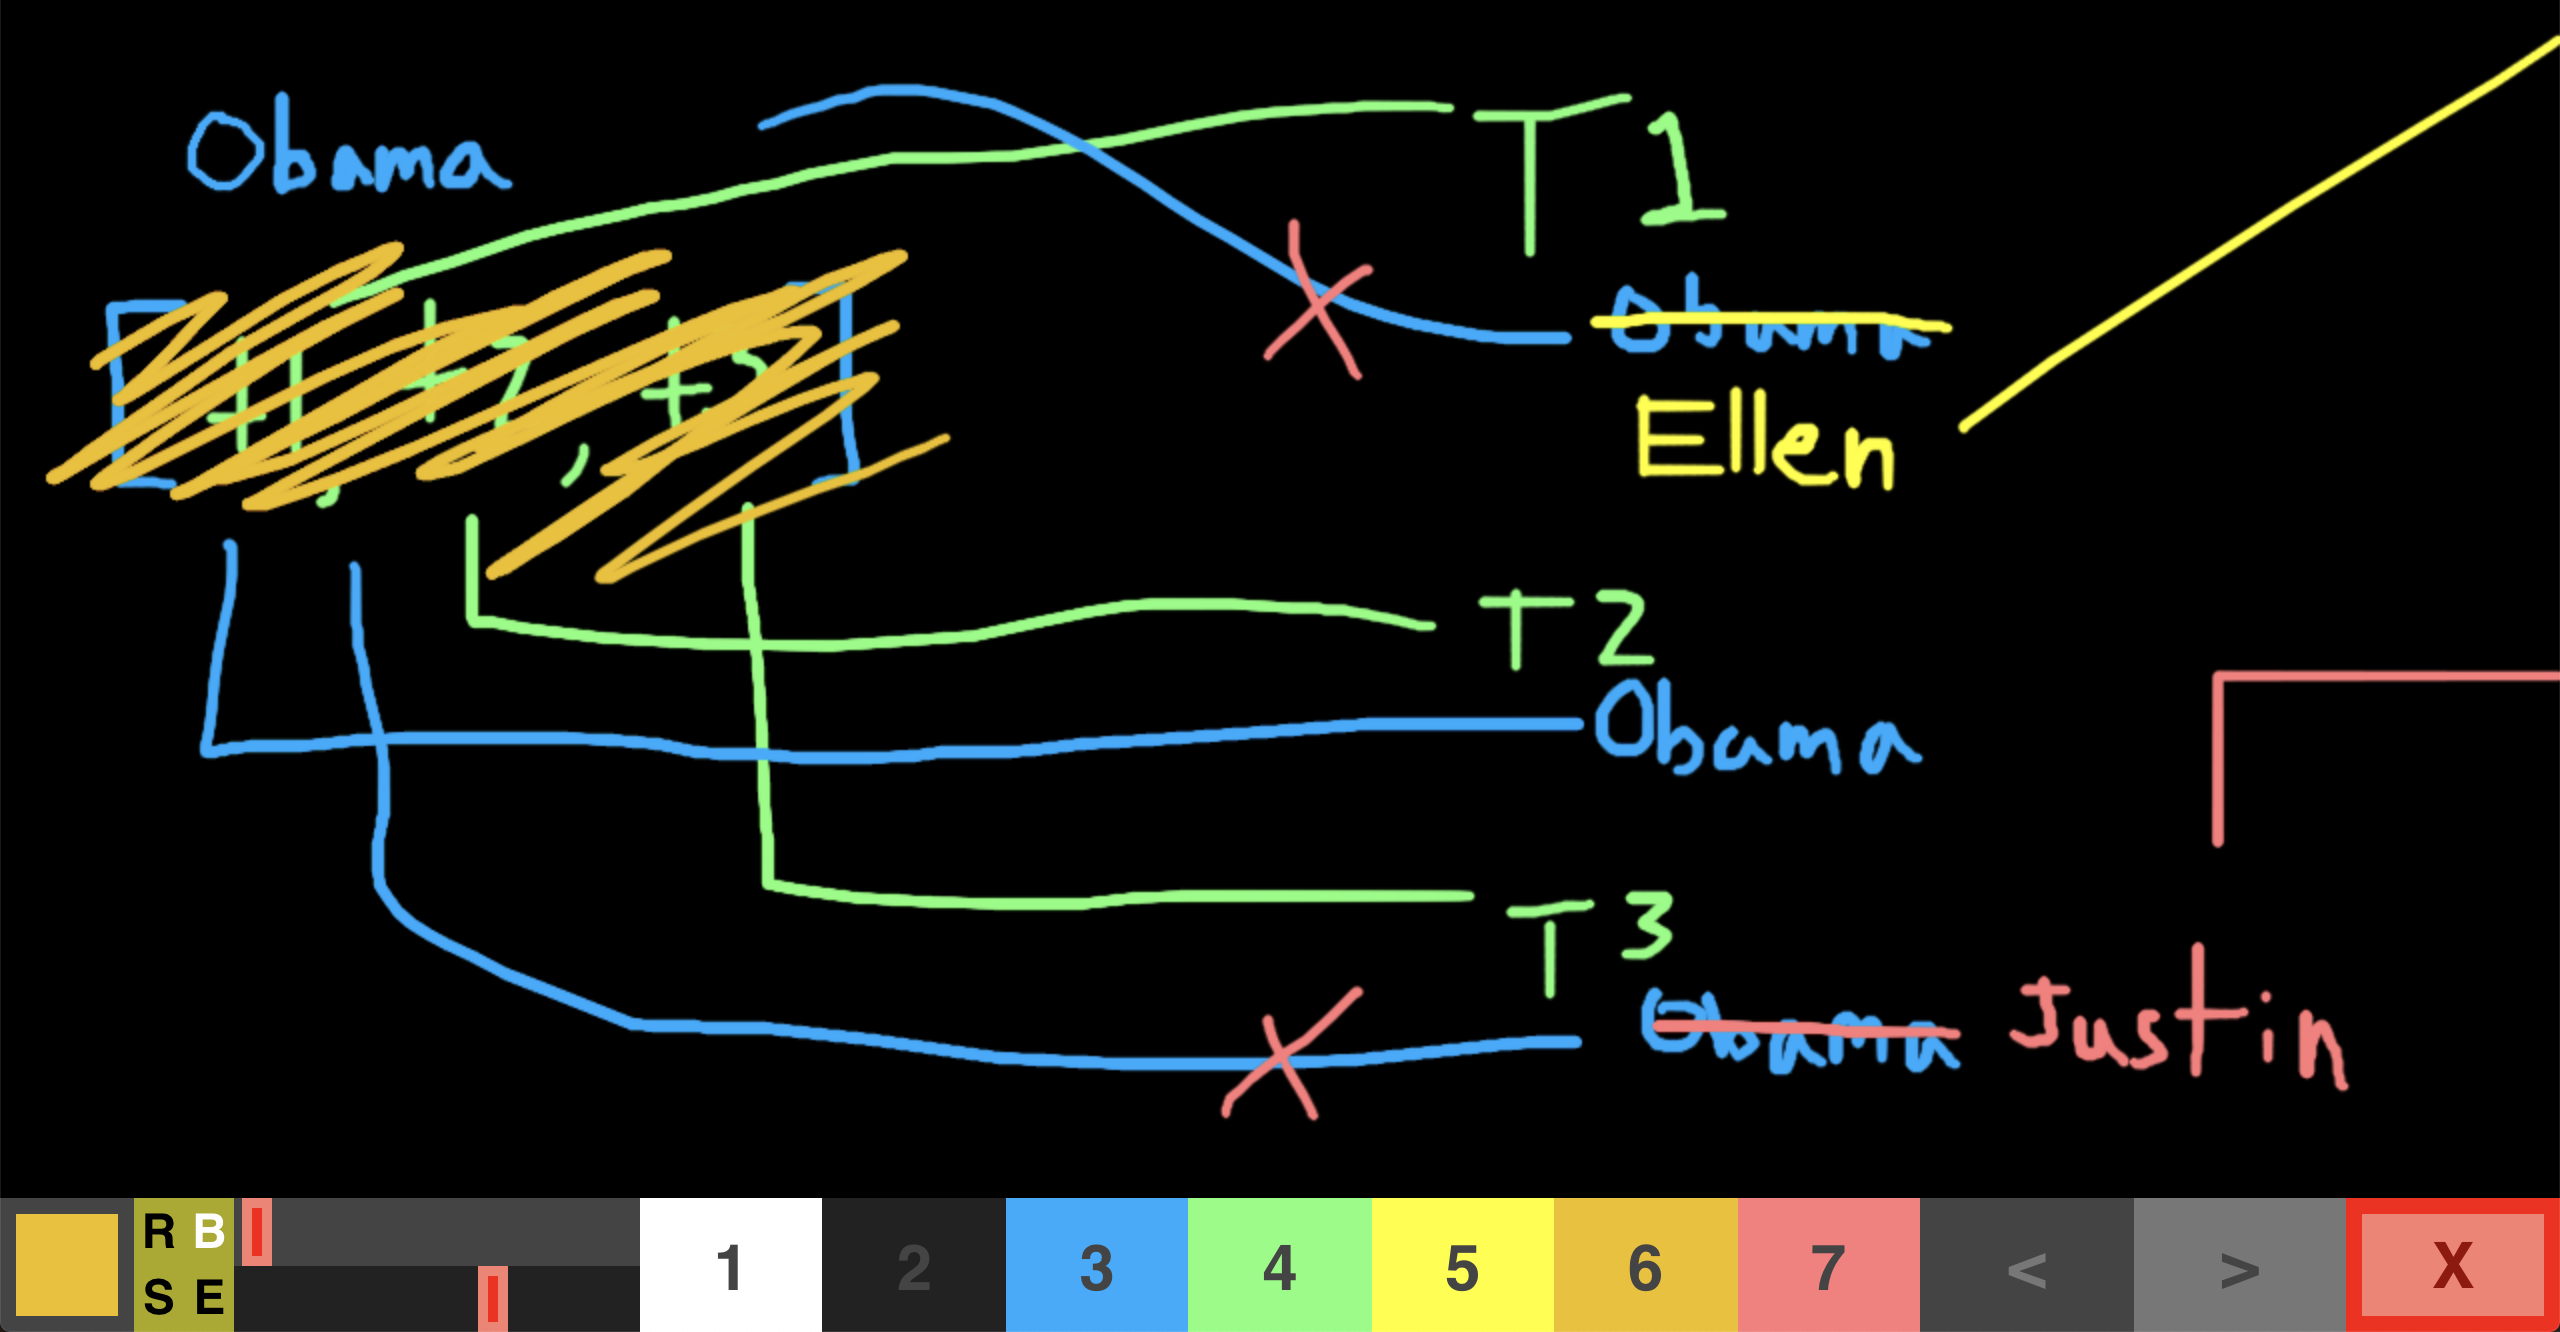 Obama
T1
Obama
Ellen
[t1, t2, t3]
T2
Obama
T3
Obama Justin
R B
S E
1 2 3 4 5 6 7 < > X